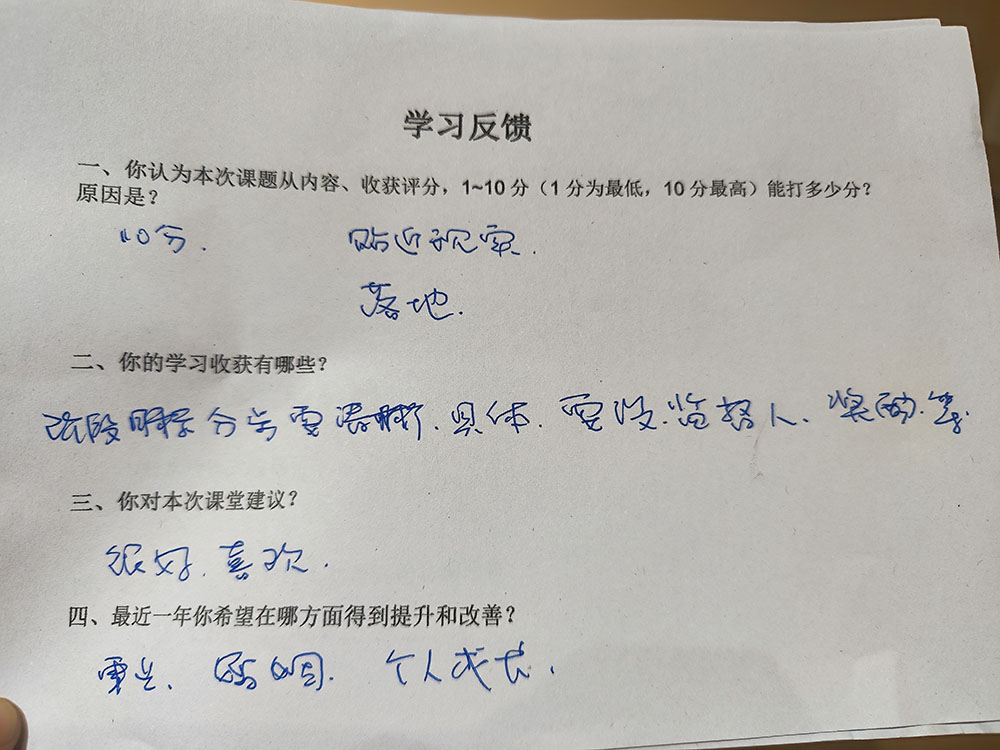 学习反馈
一、你认为本次课题从内容、收获评分，1~10分（1分为最低，10分最高）能打多少分？
原因是？
10分. 贴近现实.
落地.
二、你的学习收获有哪些？
目标分 要清晰.具体.要设.监督人.奖励.等
三、你对本次课堂建议？
很好.喜欢.
四、最近一年你希望在哪方面得到提升和改善？
事业. 婚姻. 个人成长.